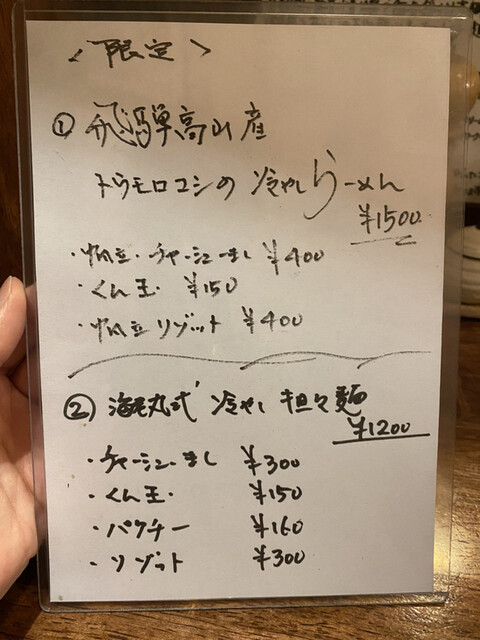 <限定>
① 飛騨高山産
トウモロコシの 冷やしらーめん
¥1500
・帆立・チャーシューまし ¥400
・くん玉 ¥150
・帆立リゾット ¥400
② 海老丸式 冷やし 担々麺
¥1200
・チャーシューまし ¥300
・くん玉・ ¥150
・パクチー ¥160
・リゾット ¥300